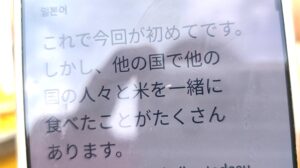 일본어
これで今回が初めてです。
しかし、他の国で他の
国の人々と米を一緒に
食べたことがたくさん
あります。